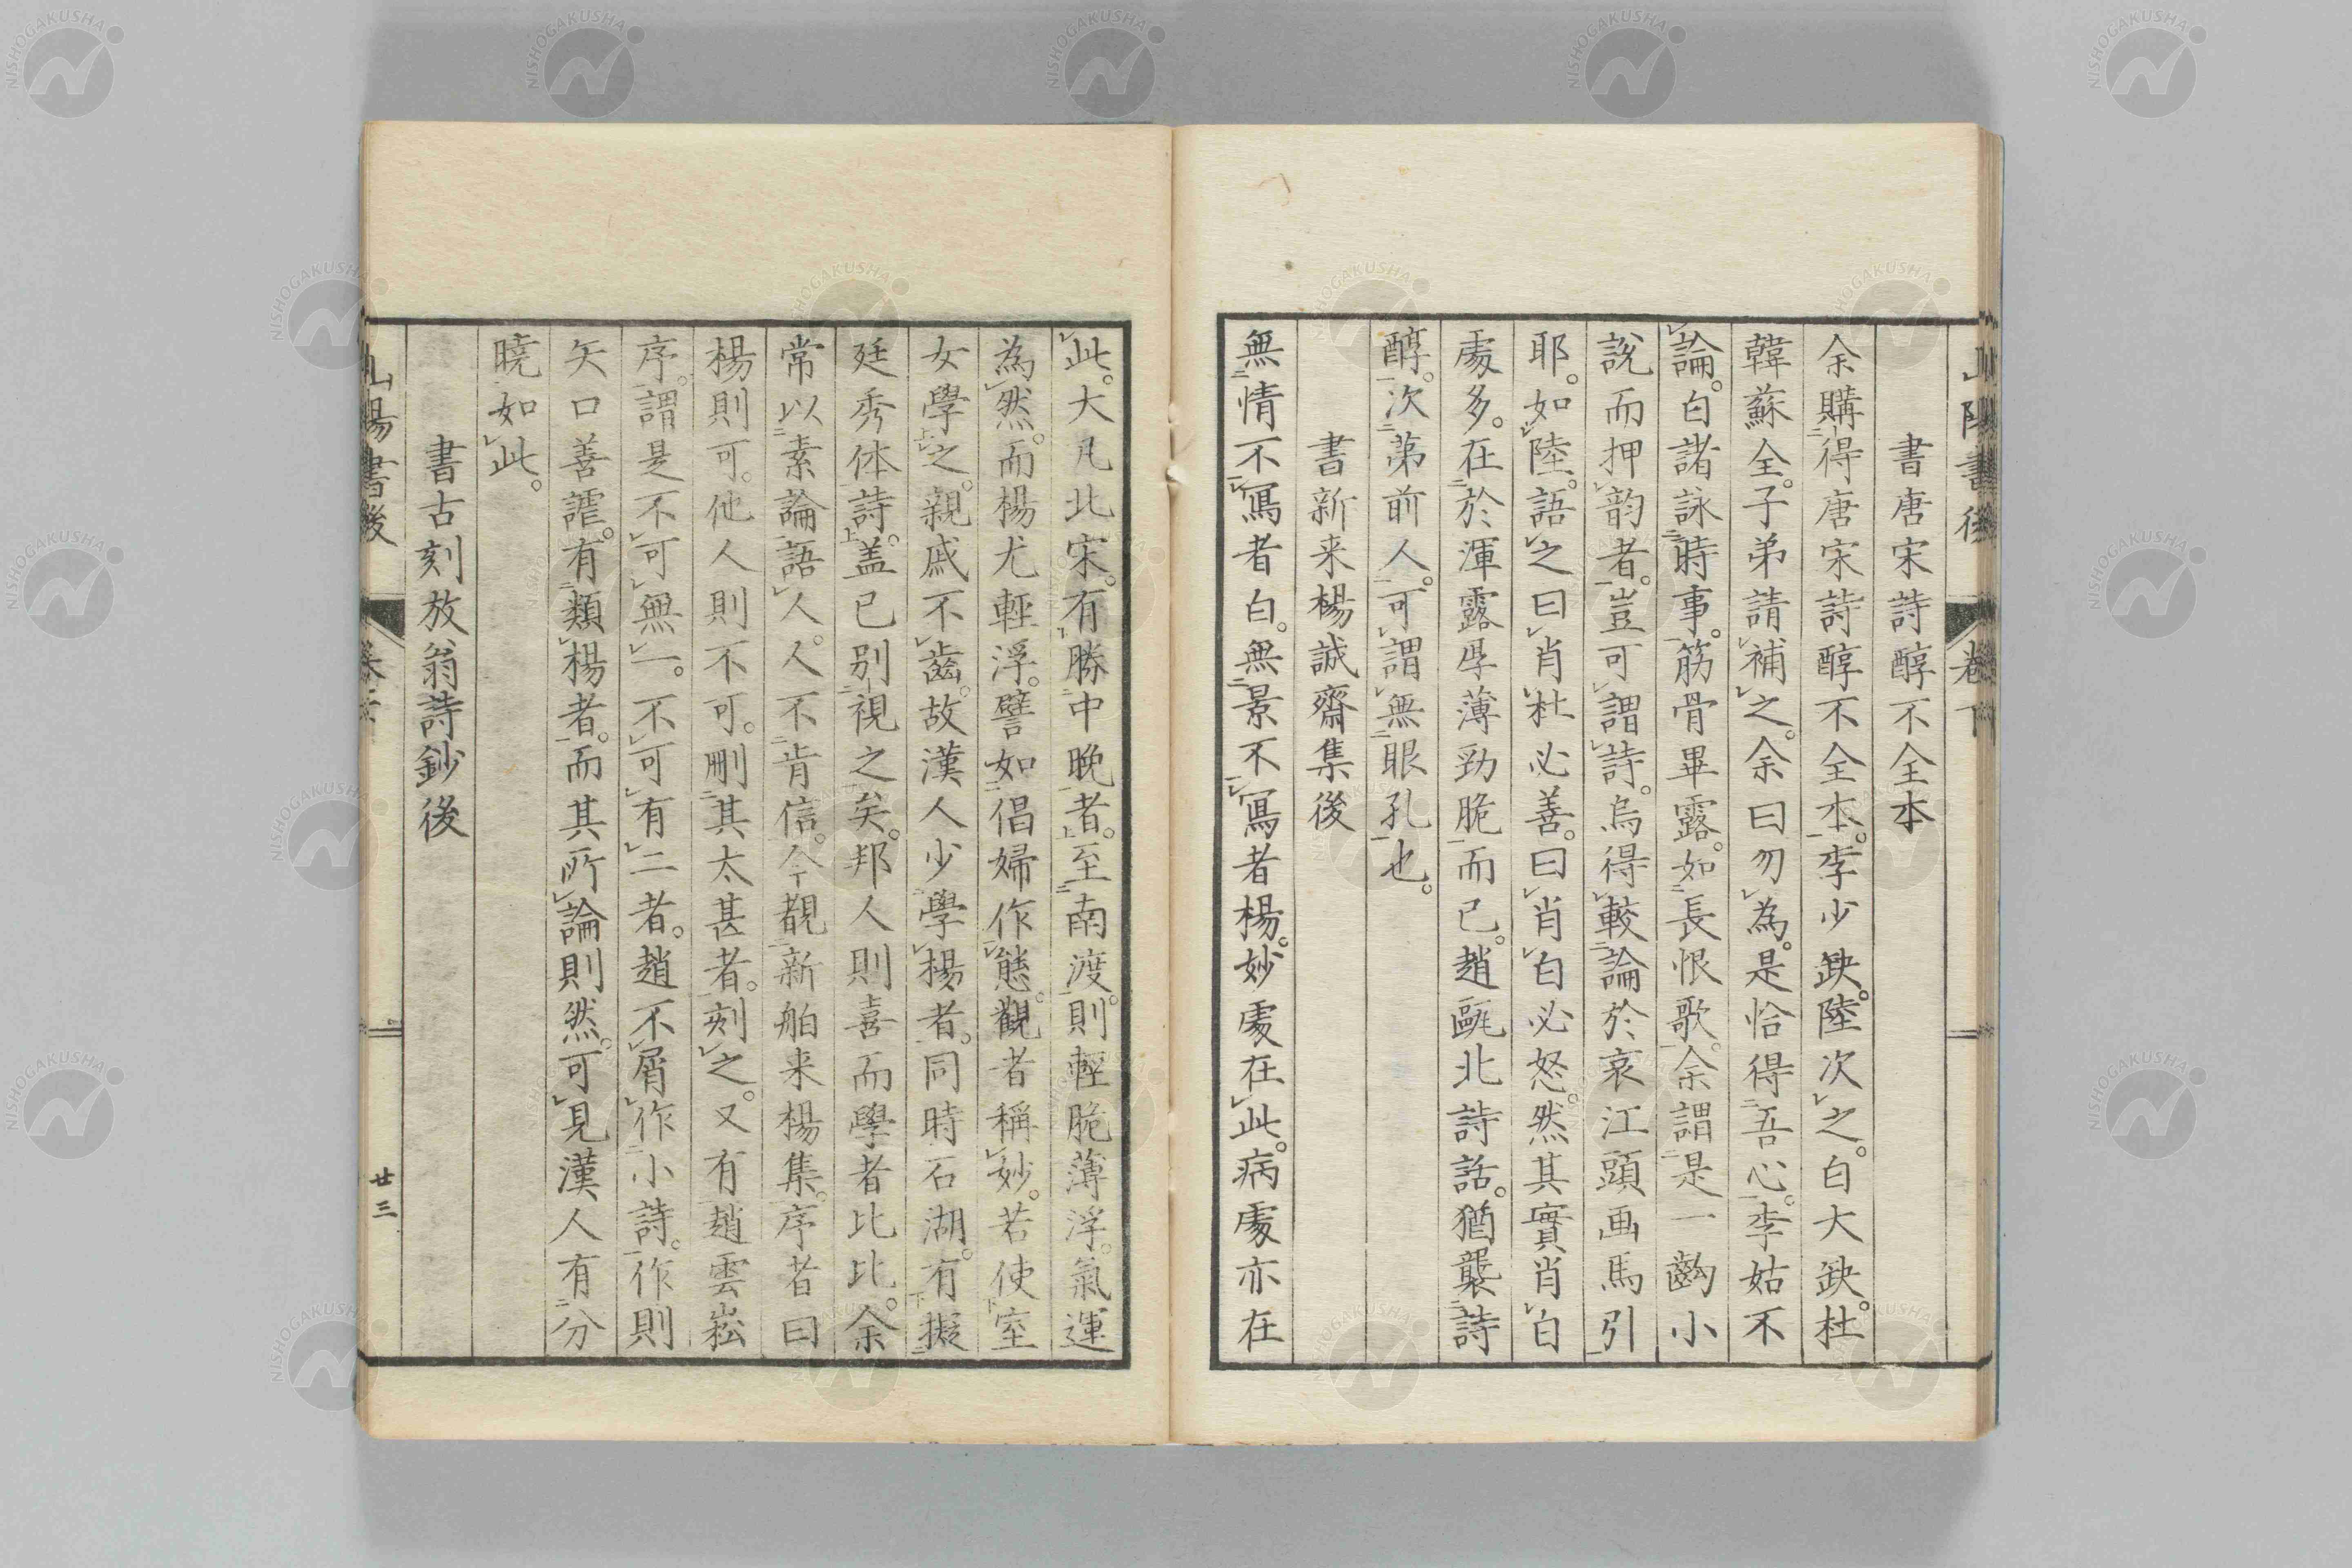 書唐宋詩醇不全本
余購得唐宋詩醇不全本。李少缺。陸次之。白大缺。杜
韓蘇全。子弟請補之。余曰勿為。是恰得吾心。李姑不
論。白諸詠時事。筋骨畢露。如長恨歌。余謂是一齣小
說而押韵者。豈可謂詩。烏得較論於哀江頭画馬引
耶。如陸。語之曰肖杜必善。曰肖白必怒。然其實肖白
處多。在於渾露厚薄勁脆而已。趙甌北詩話。猶襲詩
醇。次第前人。可謂無眼孔也。
書新来楊誠齋集後
無情不寫者白。無景不寫者楊。妙處在此。病處亦在
此。大凡北宋。有勝中晚者。至南渡。則輕脆薄浮。氣運
為然。而楊尤輕浮。譬如倡婦作態。觀者稱妙。若使室
女學之。親戚不齒。故漢人少學楊者。同時石湖。有擬
廷秀体詩。盖已别視之矣。邦人則喜而學者比比。余
常以素論語人。人不肯信。今覩新舶来楊集。序者曰
楊則可。他人則不可。刪其太甚者。刻之。又有趙雲崧
序。謂是不可無一。不可有二者。趙不屑作小詩。作則
矢口善謔。有類楊者。而其所論則然。可見漢人有分
曉如此。
書古刻放翁詩鈔後
山陽書後
卷下
廿三